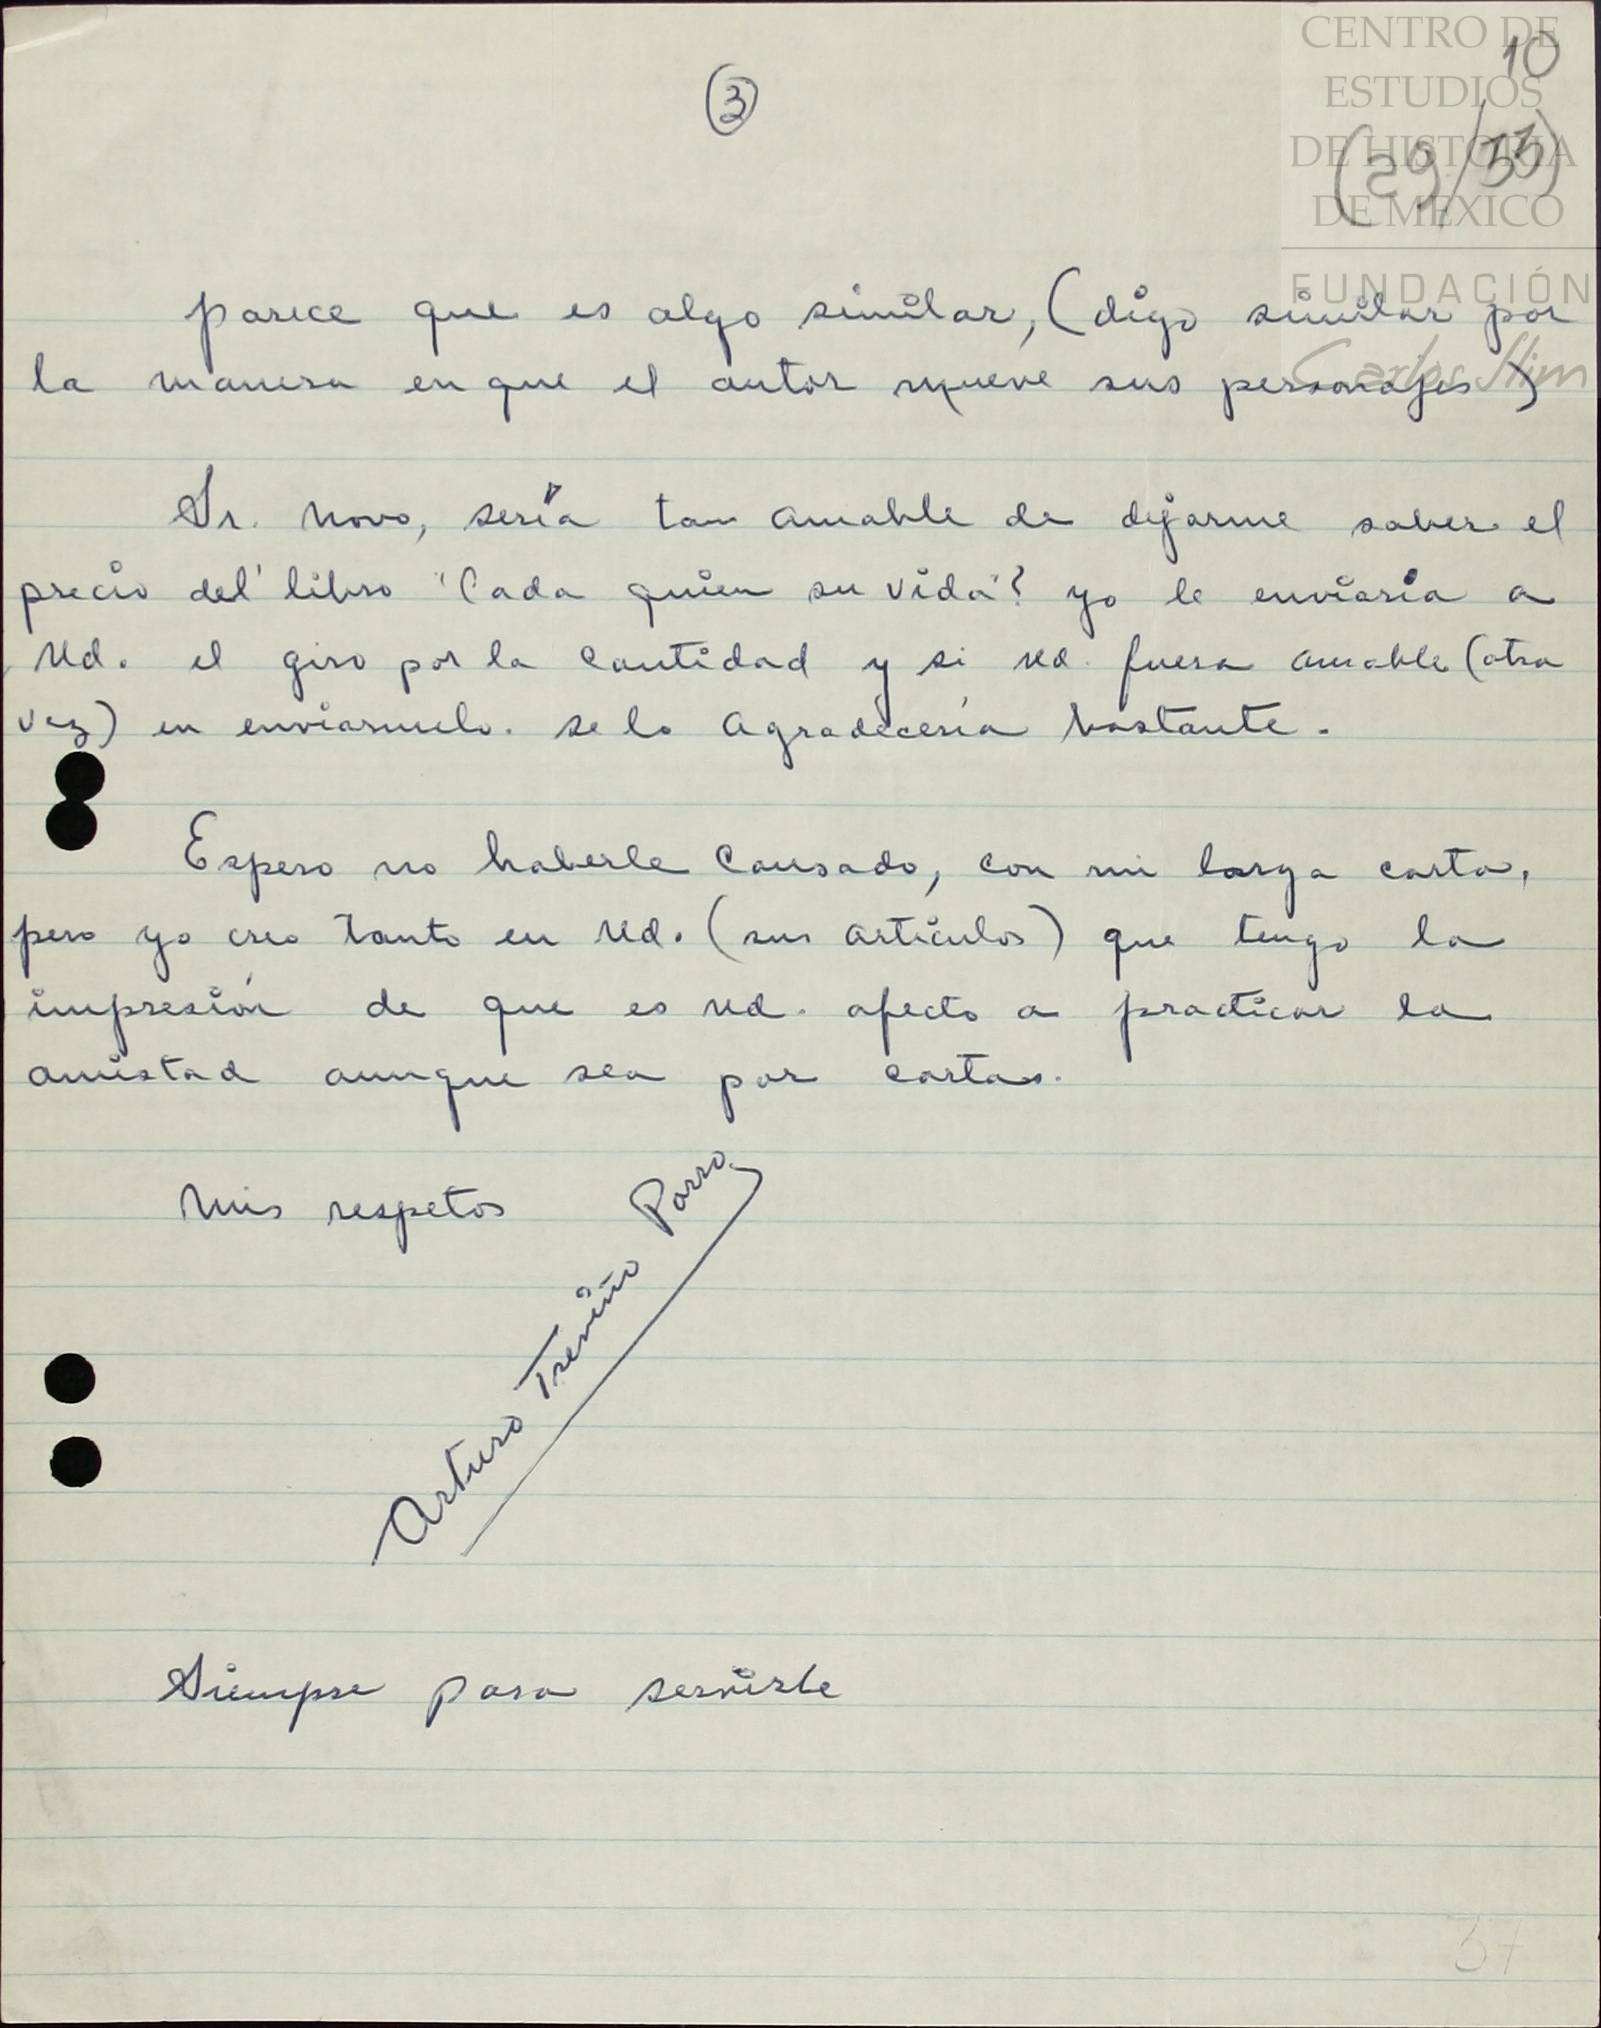 CENTRO DE
ESTUDIOS
DE HISTORIA
DE MÉXICO
FUNDACIÓN
Carlos Slim
10
(29/33)
3
parece que es algo similar, (digo similar por
la manera en que el autor mueve sus personajes)
Sr. Novo, sería tan amable de dejarme saber el
precio del libro "Cada quien su vida"? yo le enviaría a
Ud. el giro por la cantidad y si Ud. fuera amable (otra
vez) en enviarmelo. se lo agradecería bastante.
Espero no haberle cansado, con mi larga carta,
pero yo creo tanto en Ud. (sus artículos) que tengo la
impresión de que es Ud. afecto a practicar la
amistad aunque sea por cartas.
Mis respetos
Arturo Treviño Parra
Siempre para servirle
37